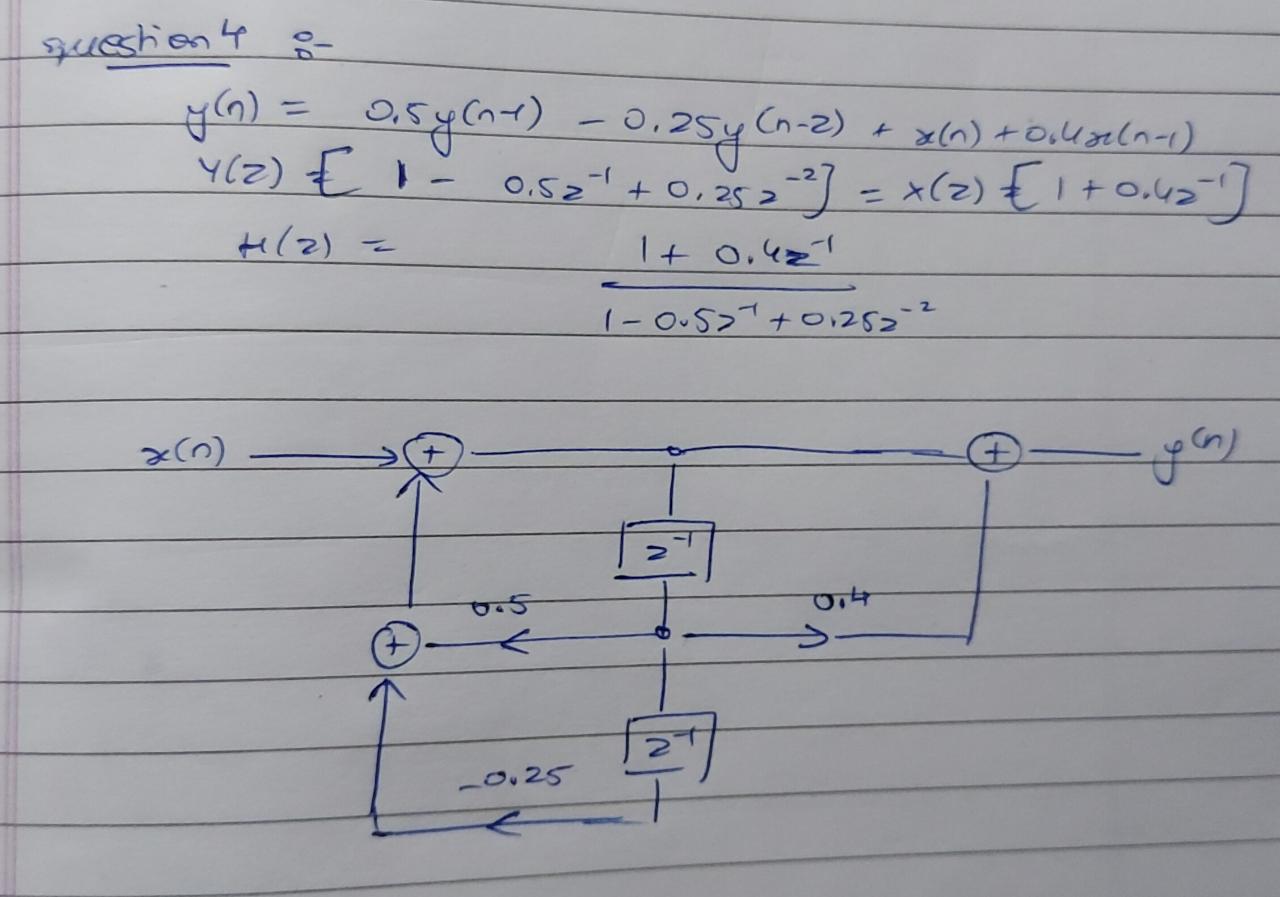 question 4 :-
y(n) = 0.5y(n-1) - 0.25y(n-2) + x(n) + 0.4x(n-1)
Y(z) [ 1 - 0.5z⁻¹ + 0.25z⁻²] = X(z) [ 1 + 0.4z⁻¹]
H(z) = 1 + 0.4z⁻¹
1 - 0.5z⁻¹ + 0.25z⁻²
x(n) + + y(n)
z⁻¹
0.5 0.4
+
z⁻¹
-0.25